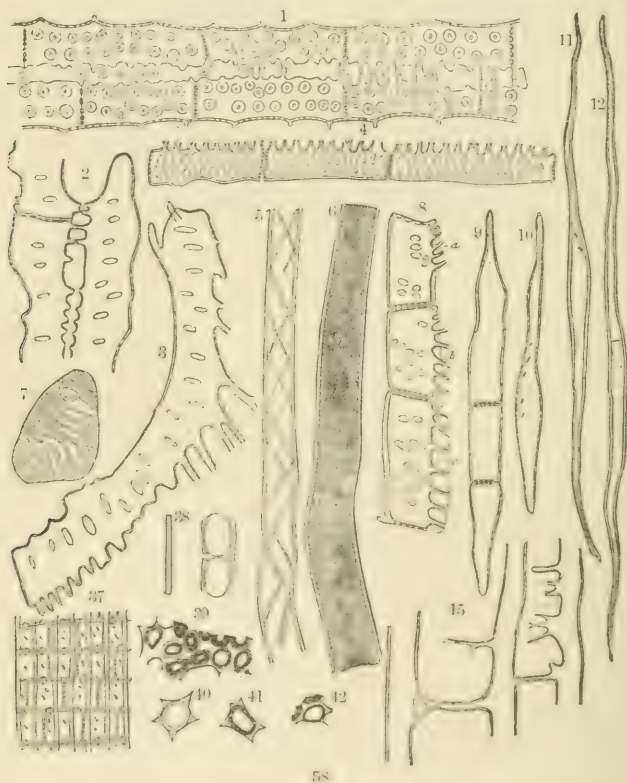 1
11
12
4
2
5
6
8
9
10
a
3
3
7
38
37
39
15
40
41
42
58